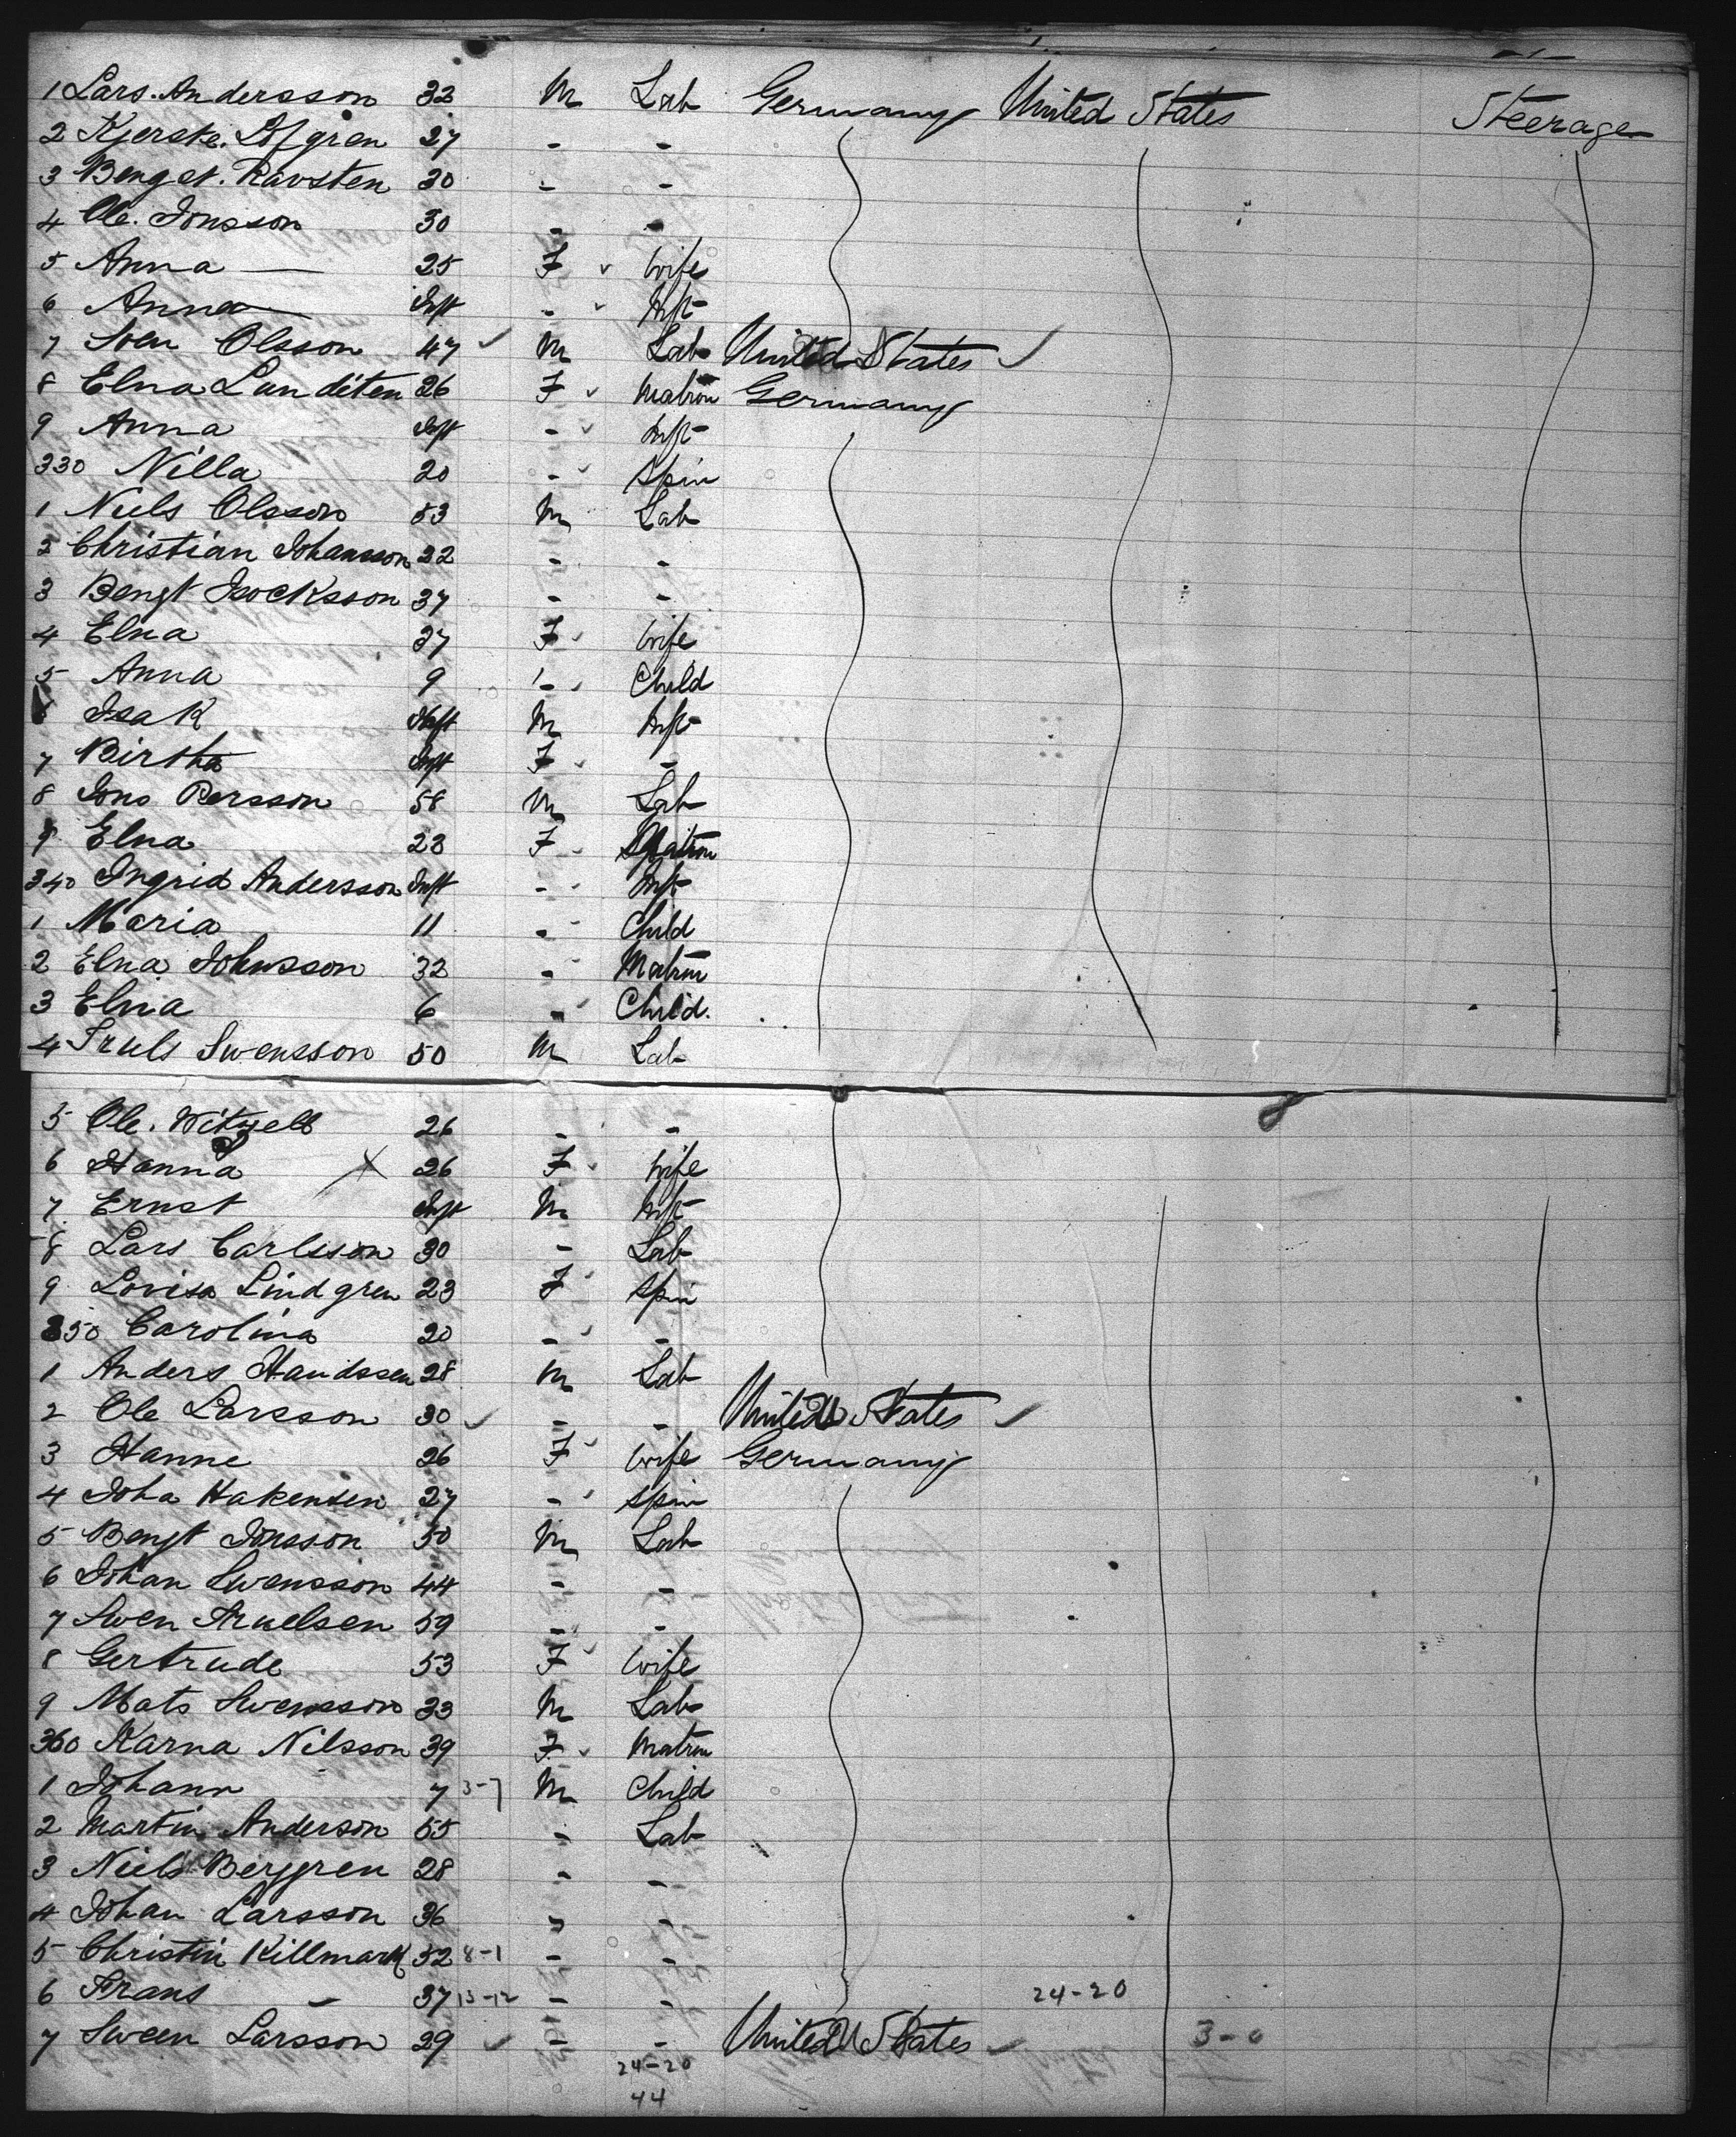 1 Lars. Andersson 32 M Lab Germany United States Steerage
2 Kjerste. Löfgren 27 - -
3 Benget. Ravsten 30 - -
4 Ole. Jonsson 30 - -
5 Anna — 25 F wife
6 Anna — Inft - Inft
7 Sven Olsson 47 M Lab United States
8 Elna Lunditen 26 F Matron Germany
9 Anna Inft - Inft
330 Nilla 20 - Spin
1 Niels Olsson 53 M Lab
2 Christian Johansson 32 - -
3 Bengt 37 - -
4 Elna 37 F wife
5 Anna 9 - Child
6 Isak Inft M Inft
7 Birtha Inft F -
8 Jons Persson 58 M Lab
9 Elna 23 F Matron
340 Ingrid Andersson Inft - Inft
1 Maria 11 - Child
2 Elna Johnsson 32 - Matron
3 Elna 6 - Child.
4 Truls Swensson 50 M Lab
5 Ole. 26 - -
6 Hanna X 26 F wife
7 Ernst Inft M Inft
8 Lars Carlsson 30 - Lab
9 Lovisa Lindgren 23 F Spin
350 Carolina 20 - -
1 Anders 28 M Lab
2 Ole Larsson 30 - - United States
3 Hanne 26 F wife Germany
4 Joha Hakensen 27 - Spin
5 Bengt Jonsson 50 M Lab
6 Johan Swensson 44 - -
7 Swen 59 - -
8 Gertrude 53 F wife
9 Mats Swensson 33 M Lab
360 Karna Nilsson 39 F Matron
1 Johann 7 3-7 M Child
2 Martin Anderson 55 - Lab
3 Niels Berggren 28 - -
4 Johan Larsson 36 - -
5 Christin Killmark 52 8-1 - -
6 Frans — 37 13-12 - - 24-20
7 Sween Larsson 29 - - United States 3-0
24-20
44